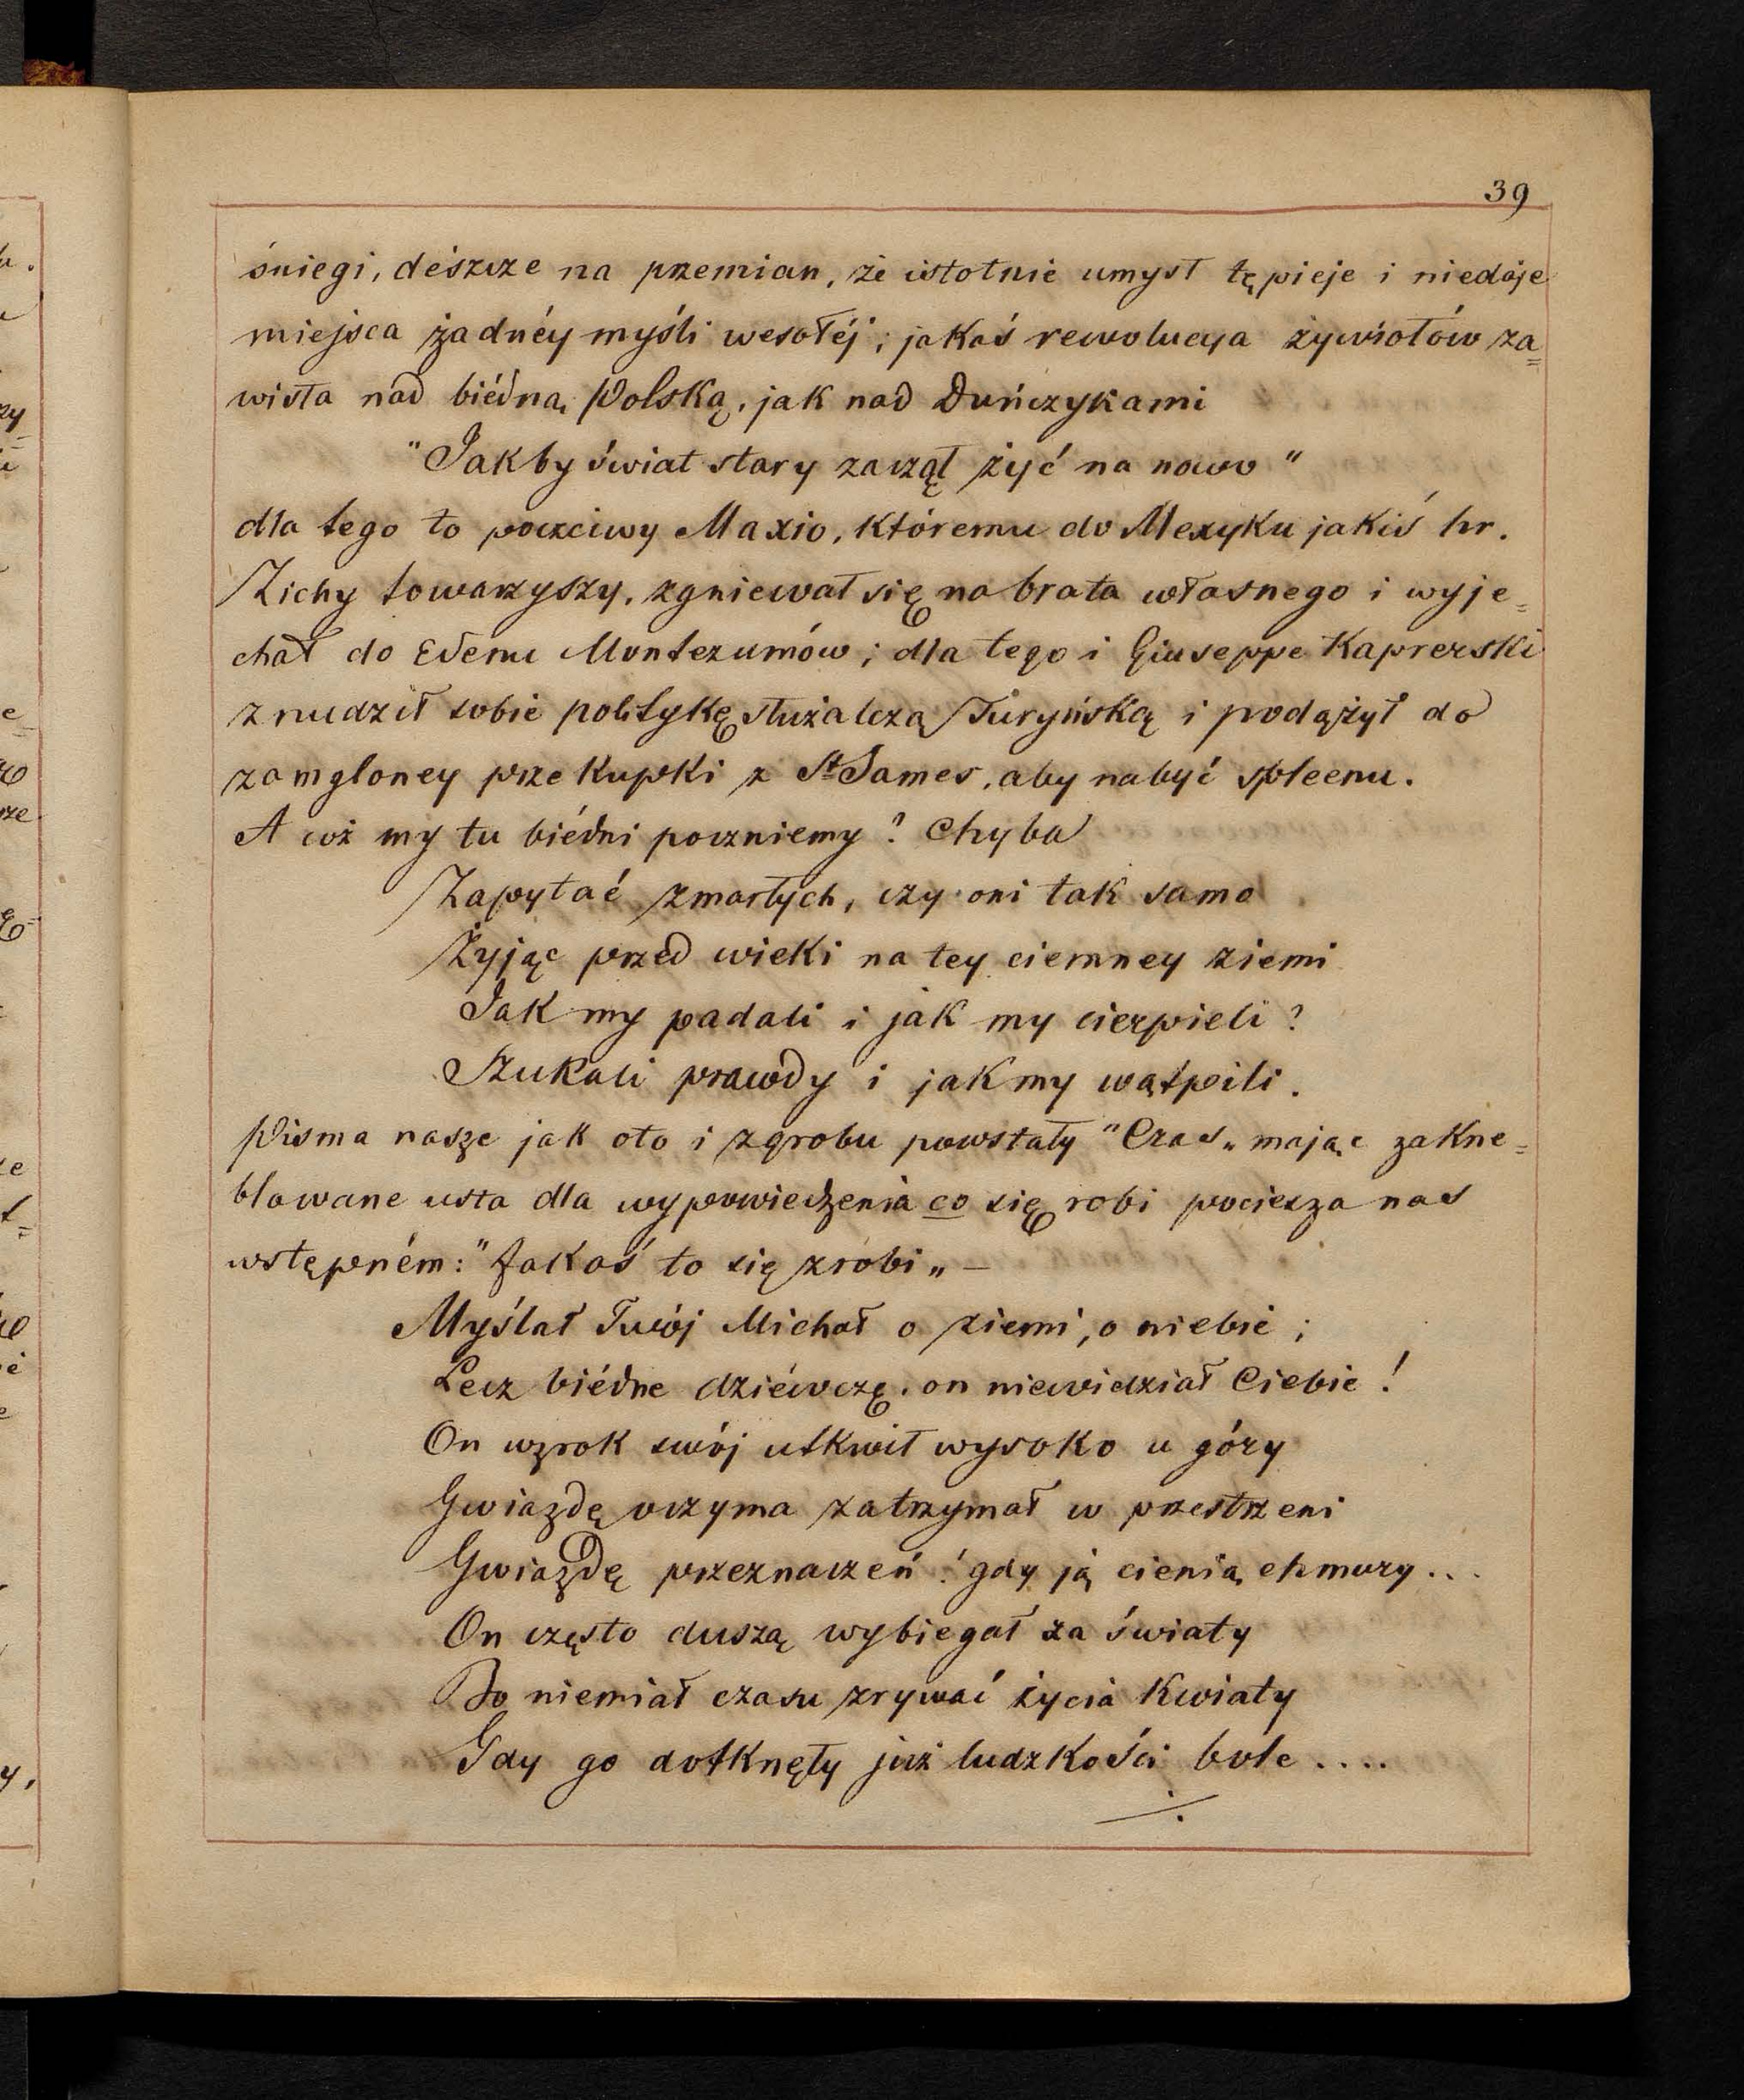 39
śniegi, deszcze na przemian, że istotnie umysł tępieje i niedaje
miejsca żadnéy myśli wesołéj; jakaś rewolucya żywiołów za=
wisła nad biédną Polską, jak nad Duńczykami
"Jakby świat stary zaczął żyć na nowo"
dla tego to poczciwy Maxio, któremu do Mexyku jakiś hr.
Zichy towarzyszy, zgniewał się na brata własnego i wyje=
chał do Edenu Montezumów; dla tego i Giuseppe Kaprerski
znudził sobie politykę służalczą Turyńską i podążył do
zamgloney przekupki z St James, aby nabyć spleenu.
A cóż my tu biédni poczniemy? Chyba
Zapytać zmarłych, czy oni tak samo
Żyjąc przed wieki na tey ciemney ziemi
Jak my padali i jak my cierpieli?
Szukali prawdy i jak my wątpili.
Pisma nasze jak oto i zgrobu powstały "Czas„ mając zakne=
blowane usta dla wypowiedzenia co się robi pociesza nas
wstępném: "Jakoś to się zrobi„ —
Myślał Twój Michał o ziemi, o niebie;
Lecz biédne dziéwczę, on niewidział Ciebie!
On wzrok swój utkwił wysoko u góry
Gwiazdę oczyma zatrzymał w przestrzeni
Gwiazdę przeznaczeń! gdy ją cienią chmury...
On często duszą wybiegał za światy
Bo niemiał czasu zrywać życia kwiaty
Gdy go dotknęły już ludzkości bole....